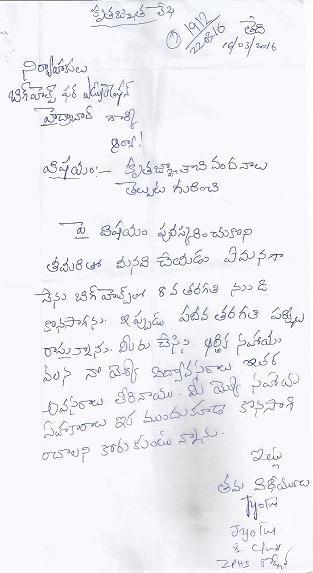 కృతజ్ఞత లేఖ
1912
22/8/16
తేది
16/03/2016
నిర్వాహకులు
బిగ్ హెల్ప్ ఫర్ ఎడ్యుకేషన్
హైద్రాబాద్ గార్కి
ఆర్యా!
విషయం:- కృతజ్ఞతాభి వందనాలు
తెల్పుట గురించి
పై విషయం పురస్కరించుకొని
తమరితో మనవి చేయుడం ఏమనగా
నేను బిగ్ హెల్ప్‌లో 8వ తరగతి నుండి
కొనసాగాను. ఇప్పుడు పదవ తరగతి పరీక్షలు
రాస్తున్నాను. మీరు చేస్తిన ఆర్థిక సహాయం
వలన నా యొక్క విద్యావసరాలు ఇతర
అవసరాలు తీరినాయి. మీ యొక్క సహాయ
సహకారాలు ఇక ముందుకూడా కొనసాగి
రావాలని కోరుకుంటున్నాను.
ఇట్లు
తమ విధేయురాలు
Jyothi
Jyothi
ZPHS